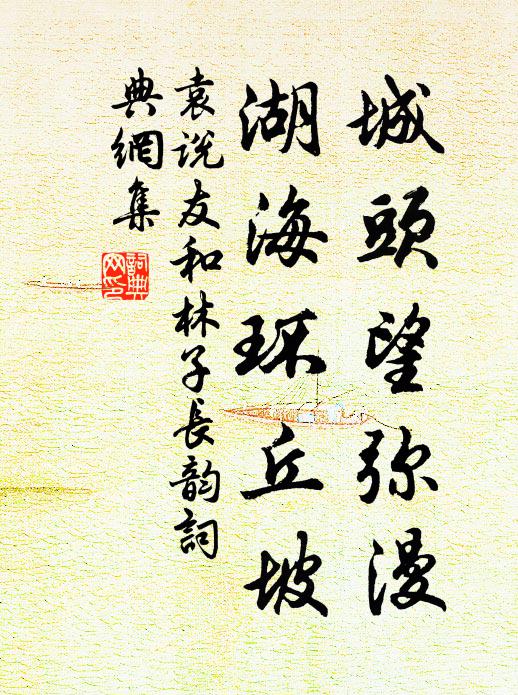 城頭望弥漫
湖海环丘坡
袁说友和林子長韵詞
典網集
詞典网印